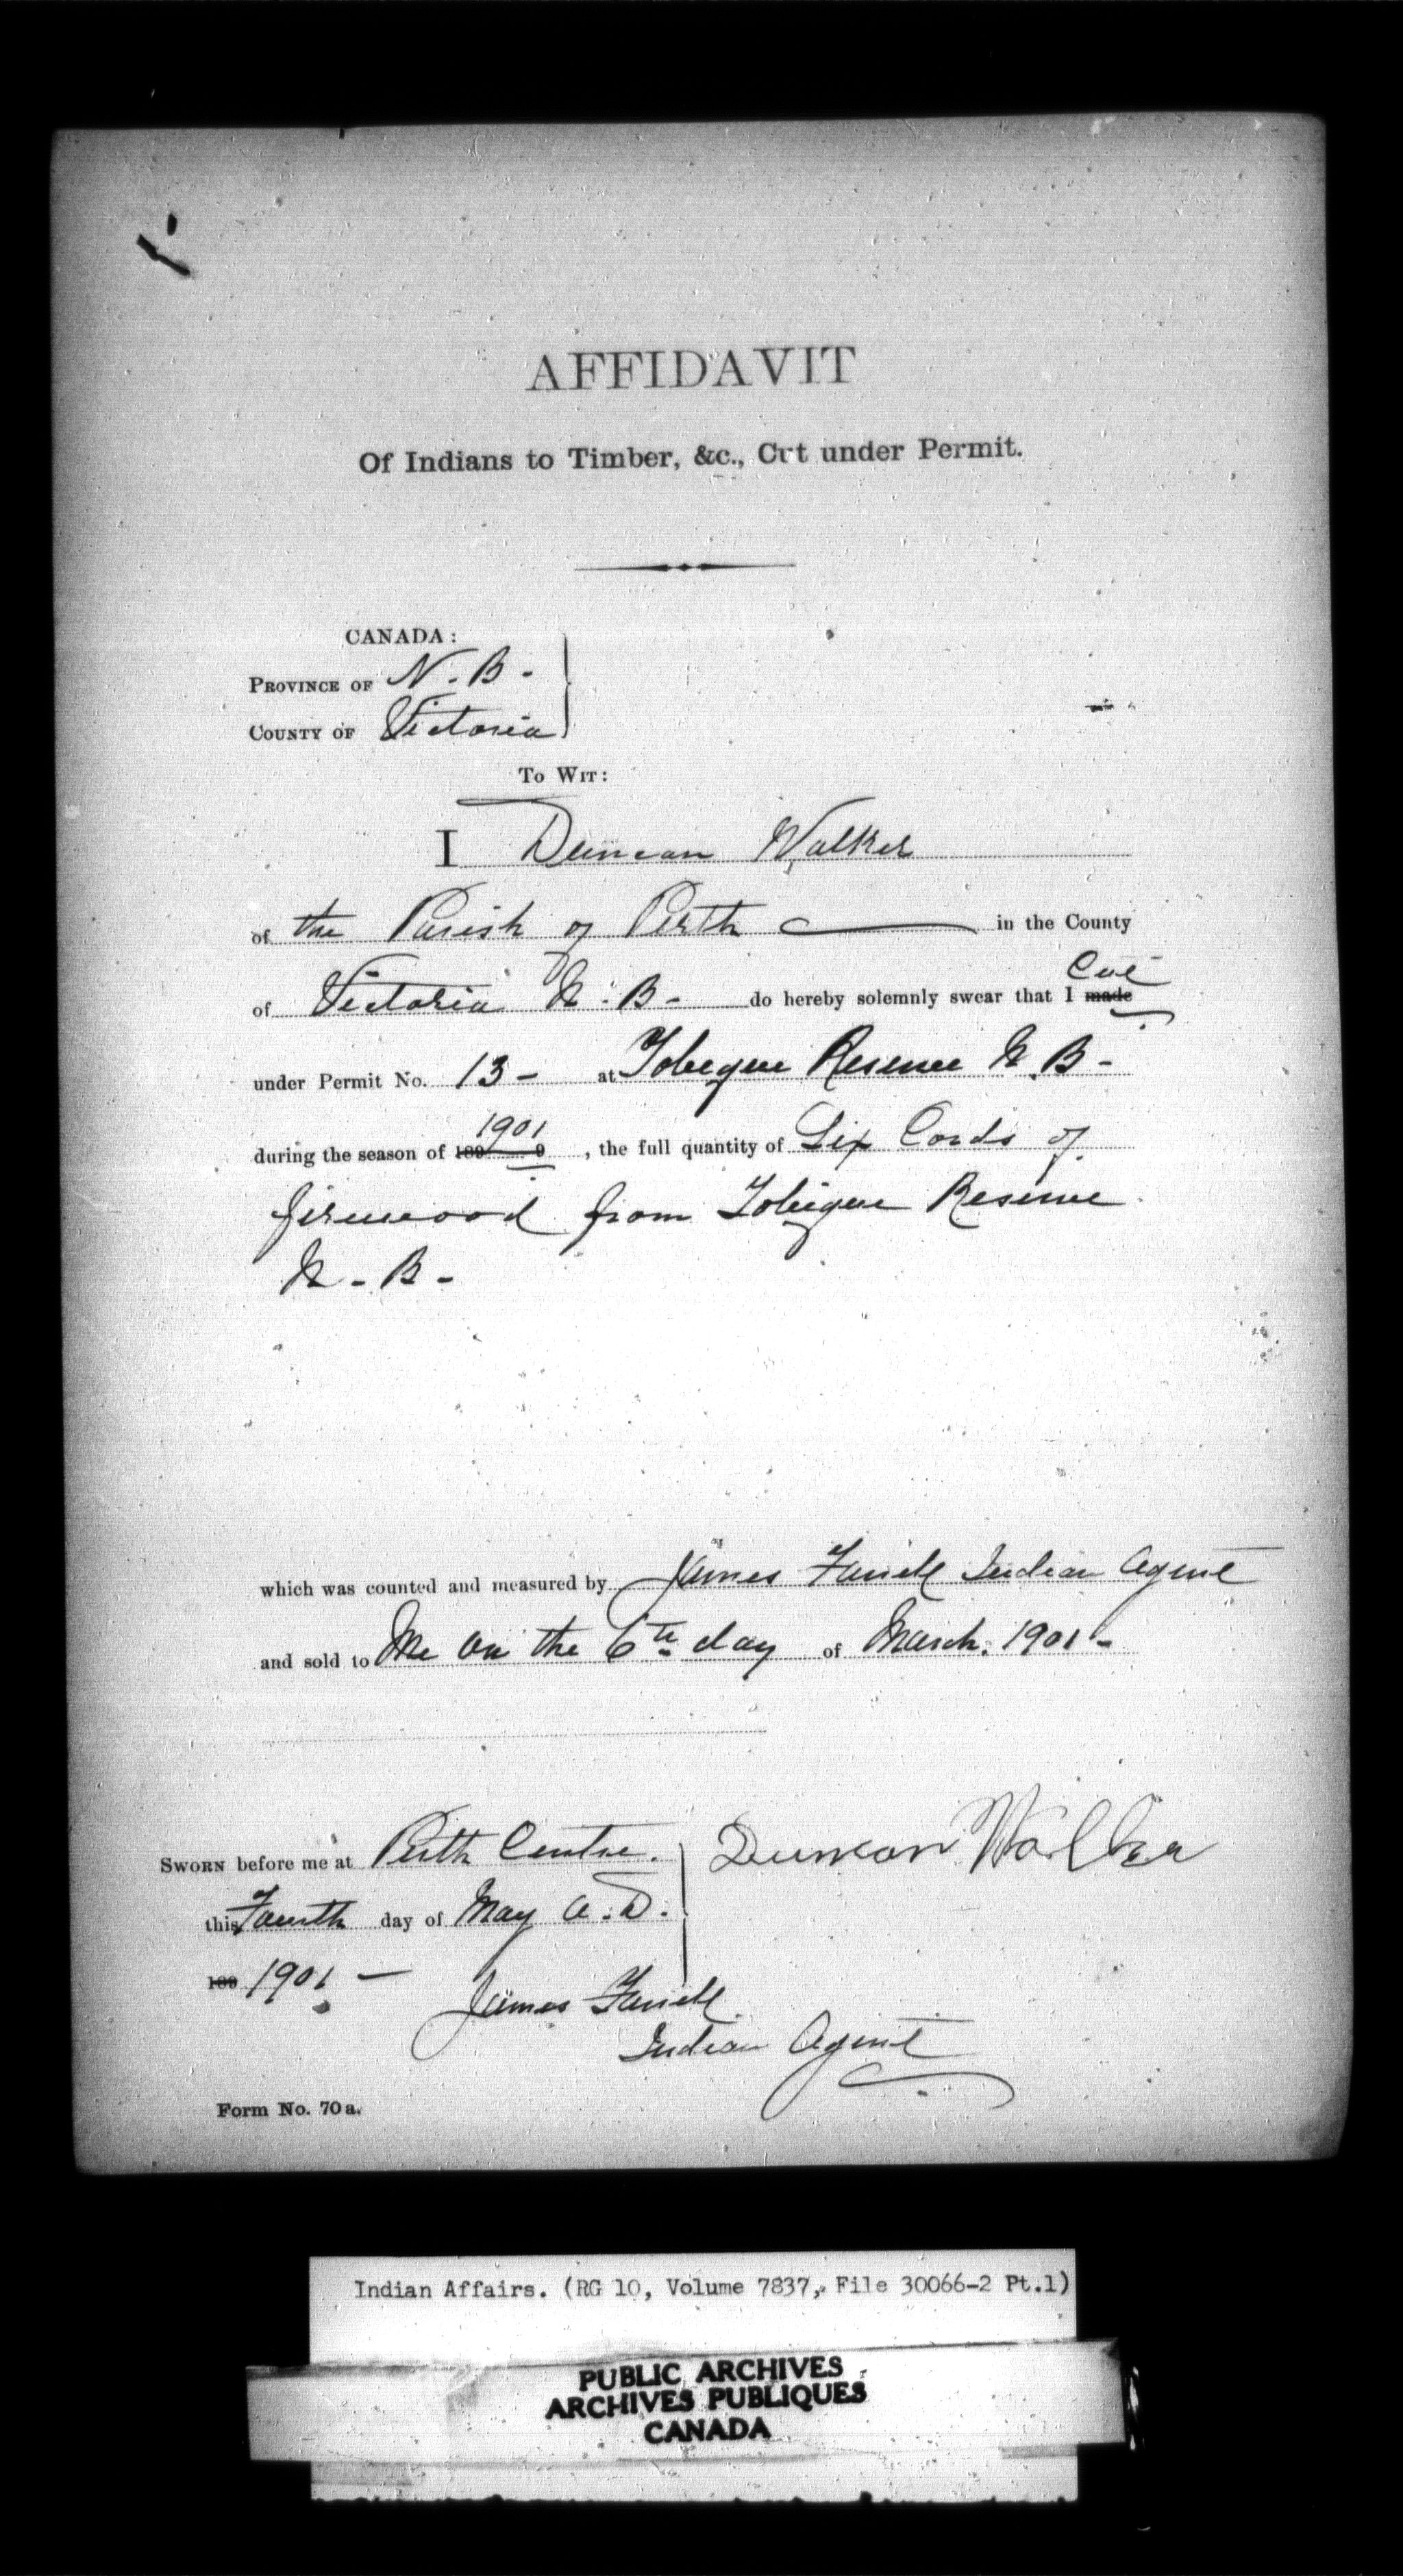 AFFIDAVIT
Of Indians to Timber, &c., Cut under Permit.
CANADA:
PROVINCE OF N. B.
COUNTY OF Victoria
TO WIT:
I Duncan Walker
of the Parish of Perth in the County
Cut
of Victoria N. B. do hereby solemnly swear that I made
under Permit No. 13 at Tobique Reserve N. B.
1901
during the season of 189 9, the full quantity of Six Cords of
firewood from Tobique Reserve
N. B.
which was counted and measured by James Farrell Indian Agent
and sold to Me on the 6th day of March. 1901
SWORN before me at Perth Centre. Duncan Walker
this Fourth day of May A. D.
189 1901
James Farrell
Indian Agent
Form No. 70 a.
Indian Affairs. (RG 10, Volume 7837, File 30066-2 Pt.1)
PUBLIC ARCHIVES
ARCHIVES PUBLIQUES
CANADA